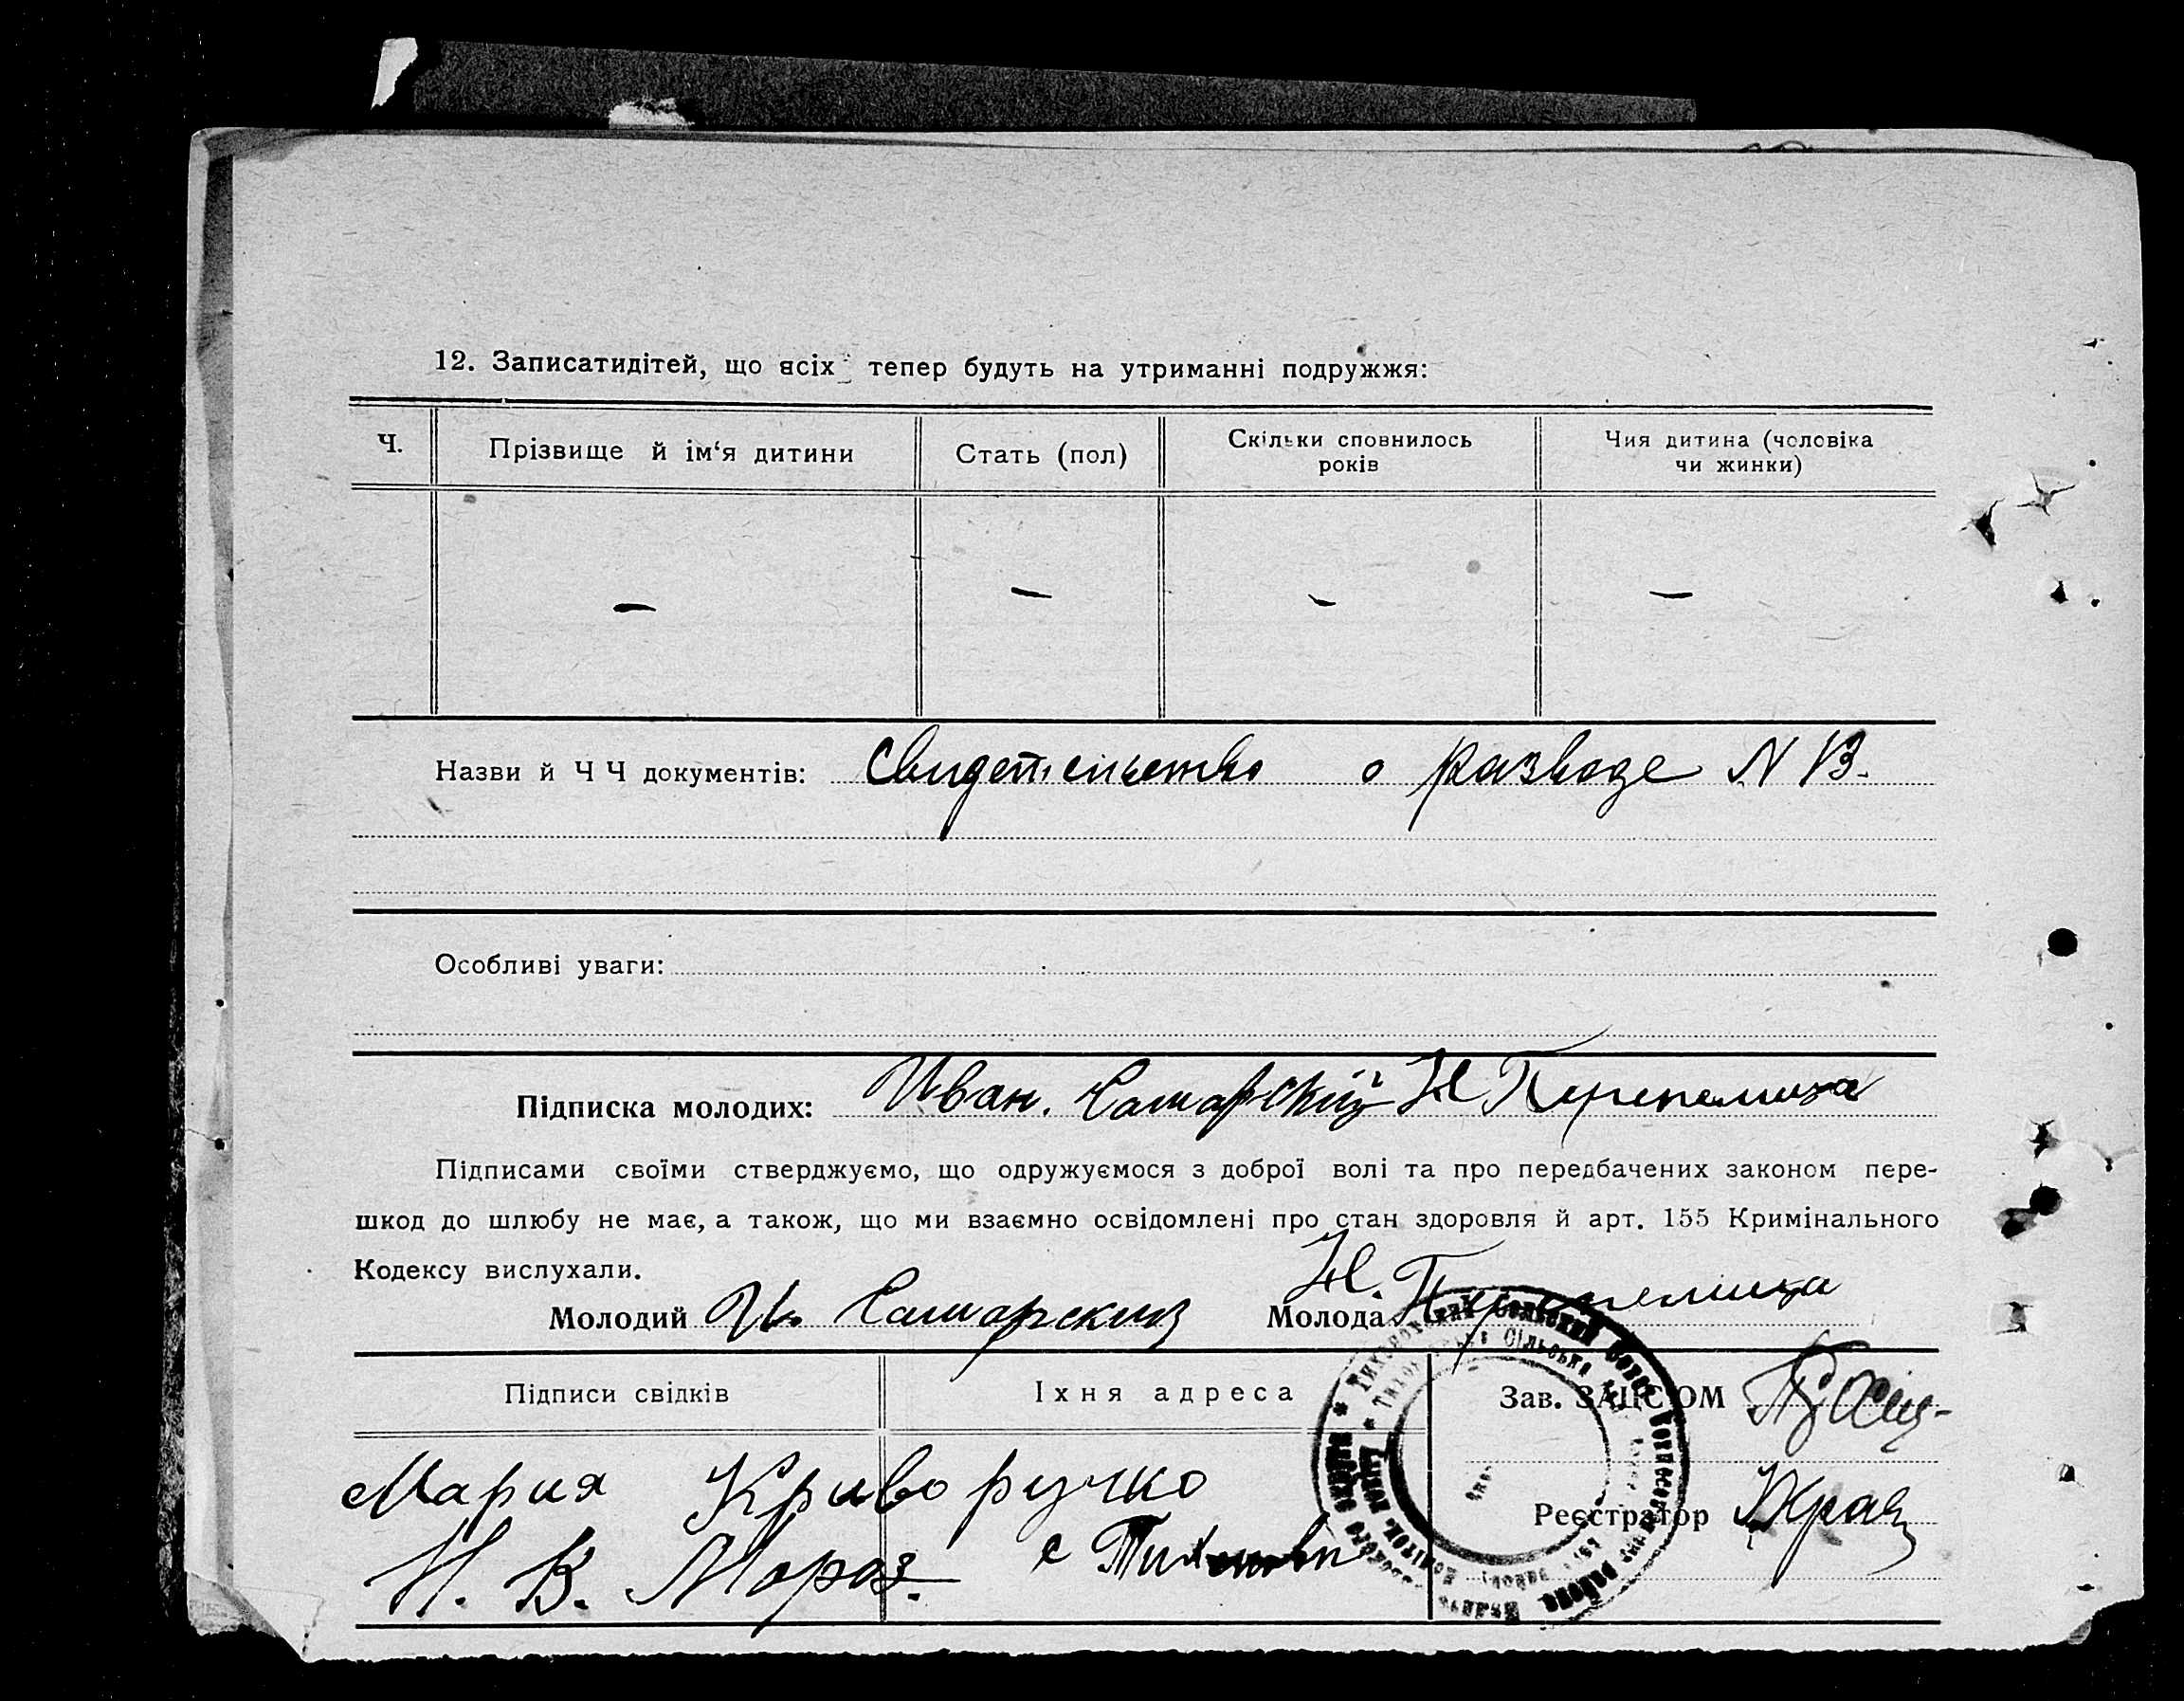 12. Записатидітей, що всіх тепер будуть на утриманні подружжя:
Ч.
Прізвище й ім‘я дитини
Стать (пол)
Скільки сповнилось
років
Чия дитина (чоловіка
чи жинки)
— — — —
Назви й Ч Ч документів: Свидетельство о разводе N 13.
Особливі уваги:
Підписка молодих: Иван. Самарский Н Перепелица
Підписами своїми стверджуємо, що одружуємося з доброї волі та про передбачених законом пере-
шкод до шлюбу не має, а також, що ми взаємно освідомлені про стан здоровля й арт. 155 Кримінального
Кодексу вислухали.
Молодий Ив. Самарский Молода Н. Перепелица
Підписи свідків
Іхня адреса
Зав. ЗАЦСОМ
Мария Криворучко
Реєстратор
Н. В. Мороз. с Тихоновк
Тихоновский Сельский Совет
Сільська
района